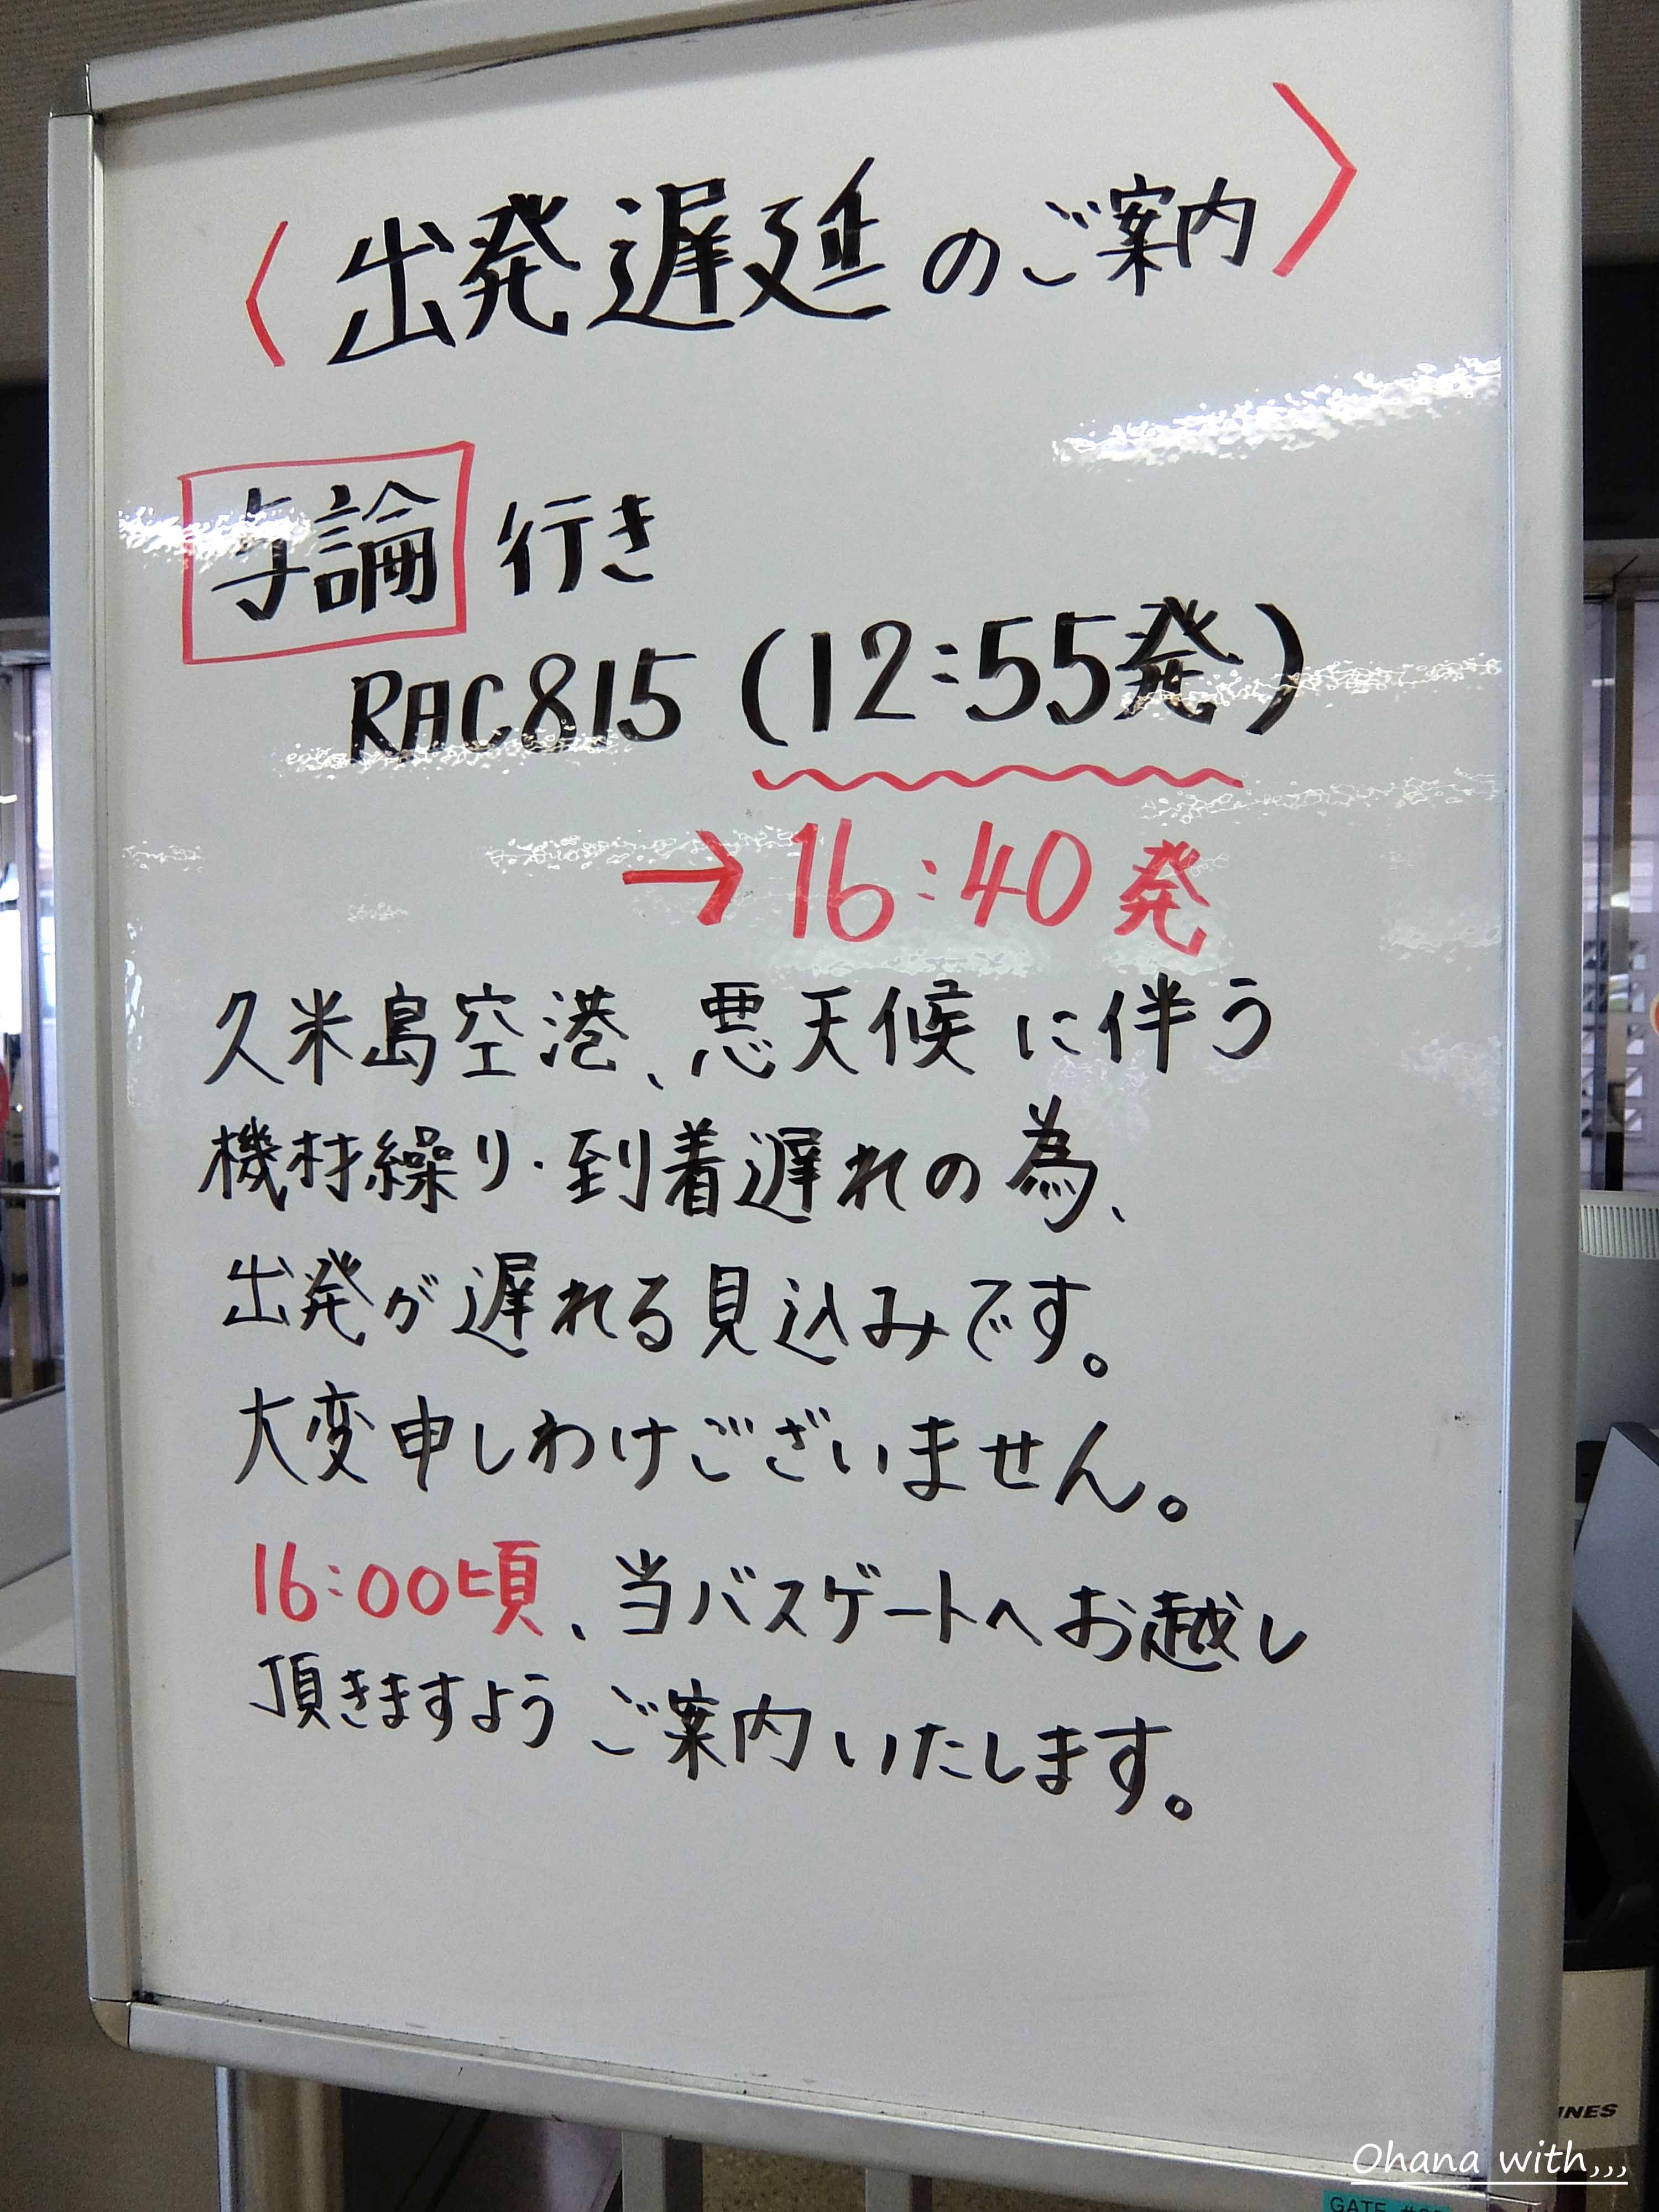 〈出発遅延のご案内〉
与論行き
RAC815(12:55発)
→16:40発
久米島空港、悪天候に伴う
機材繰り・到着遅れの為、
出発が遅れる見込みです。
大変申しわけございません。
16:00頃、当バスゲートへお越し
頂きますようご案内いたします。
INES
Ohana with,,,
GATE